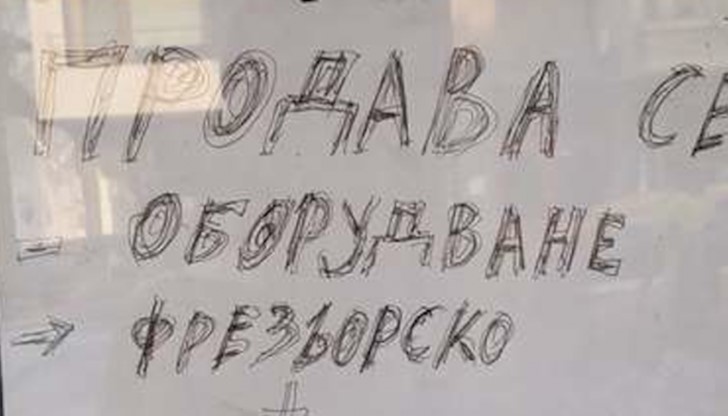 ПРОДАВА СЕ
- ОБОРУДВАНЕ
→ ФРЕЗЬОРСКО
+